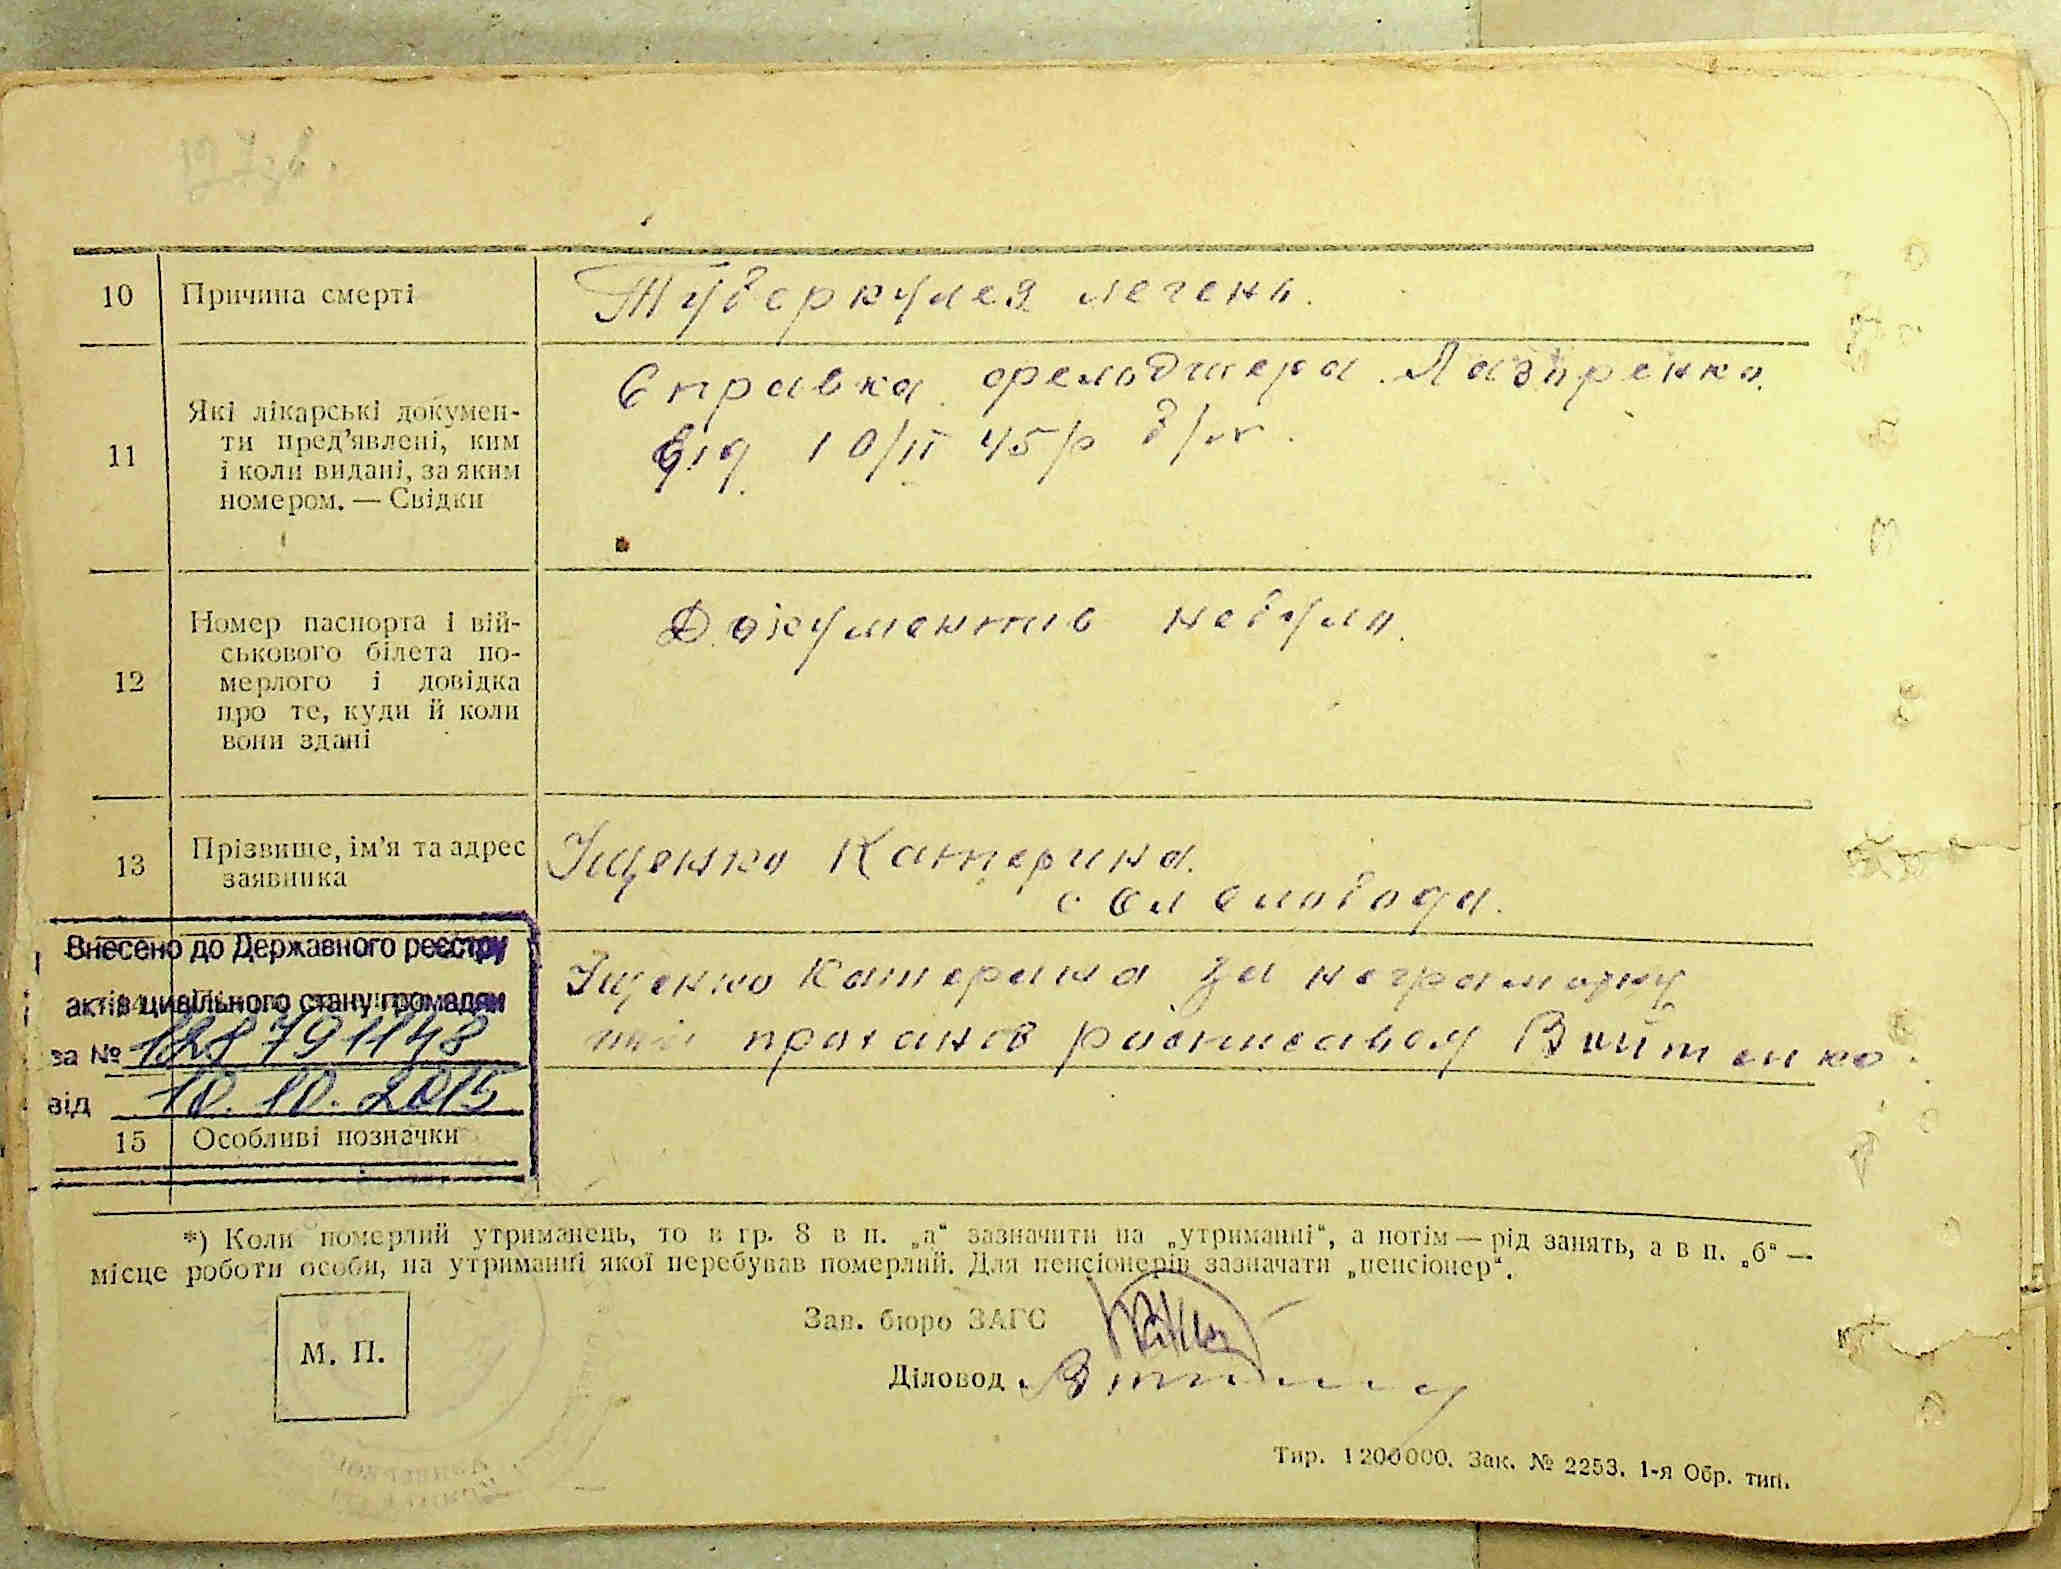 10 Причина смерті Туберкулез легень.
11 Які лікарські докумен-
ти пред'явлені, ким
і коли видані, за яким
номером. — Свідки
Справка фельдшера Лазаренко
від 10/II 45 р б/н.
12 Номер паспорта і вій-
ськового білета по-
мерлого і довідка
про те, куди й коли
вони здані
Документів небуло.
13 Прізвище, ім'я та адрес
заявника
Іщенко Катерина.
с Слобода.
Іщенко Катерина за неграмотну
росписався Войтенко
Внесено до Державного реєстру
актів цивільного стану громадян
за № 128791148
від 10.10.2015
15 Особливі позначки
*) Коли померлий утриманець, то в гр. 8 в п. „а“ зазначити на „утриманні“, а потім — рід занять, а в п. „б“ —
місце роботи особи, на утриманні якої перебував померлий. Для пенсіонерів зазначати „пенсіонер“.
М. П.
Зав. бюро ЗАГС
Діловод
Тир. 1200000. Зак. № 2253. 1-я Обр. тип.